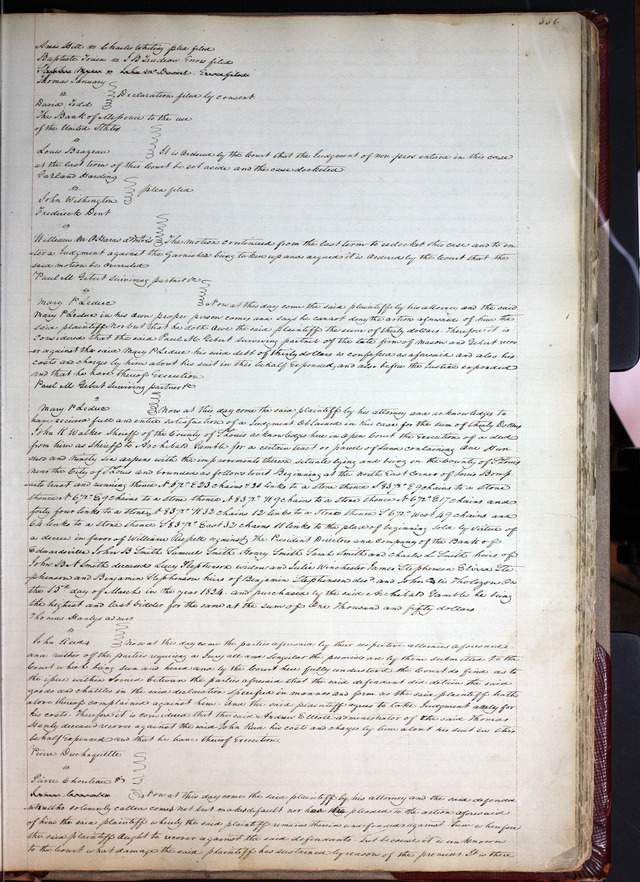 336
Ames Hill vs Charles Whiting plea filed
Baptiste vs J B Trudeau Errors filed
vs John Mc Errors filed
Thomas January
vs Declaration filed by consent
David Todd
The Bank of Missouri to the use
of the United States
vs
Louis Brazeau It is ordered by the Court that the Judgment of non pros entered in this case
at the last term of this Court be set aside and the case docketed
Garland Harding
vs plea filed
John Withington
Fredrick Dent
vs
William M The motion continued from the last term to redocket this case and to en
ter a Judgment against the Garnishee being taken up and argued it is ordered by the Court that the
said motion be overruled
Paul M Gebert surviving partner &c
vs
Mary P Leduc Now at this day come the said plaintiff by his attorney and the said
Mary P Leduc in his own proper person comes and says he cannot deny the action aforesaid of him the
said plaintiff nor but that he doth owe the said plaintiff the sum of thirty dollars. Therefore it is
considered that the said Paul M Gebert surviving partner of the late firm of Mason and Gebert recov
er against the said Mary P Leduc his said debt of thirty dollars so confessed as aforesaid and also his
costs and charges by him about his suit in this behalf Expended, and also before the Justice expended
and that he have thereof Execution
Paul M Gebert surviving partner &c
vs
Mary P Leduc Now at this day come the said plaintiff by his attorney and acknowledges to
have received full and entire satisfaction of a Judgment obtained in this case for the sum of thirty Dollars
John K Walker Sheriff of the County of St Louis acknowledges here in open Court the Execution of a deed
from him as Sheriff to Archibald Gamble for a certain tract or parcel of land containing One Hun
dred and ninety six arpens with the improvements thereon situate lying and being in the County of St Louis
near the City of St Louis and bounded as follows to wit Beginning at the North East Corner of Louis
tract and running thence N 67½ E 23 chains & 31 links to a stone thence S 83½ E 9 chains to a stone
thence N 67½ E 9 chains to a stone thence N 83½ W 9 chains to a stone thence N 67½ E 17 chains and
forty four links to a stone, N 83½ W 32 chains 12 links to a stone thence S 67½ West 49 chains and
64 links to a stone thence S 83½ East 32 chains 11 links to the place of beginning sold by virtue of
a decree in favor of William Russell against the President Directors and Company of the Bank of
Edwardsville John B Smith Samuel Smith Henry Smith Sarah Smith and Charles L Smith heirs of
John B N Smith deceased Lucy Stephenson widow and Julia Winchester James Stephenson Elvira Ste
phenson and Benjamin Stephenson heirs of Benjamin Stephenson decd. and John Thologan on
the 15th day of March in the year 1824 and purchased by the said Archibald Gamble he being
the highest and last bidder for the same at the sum of One Thousand and fifty dollars
Thomas Hanlys admr
vs
John Reed Now at this day come the parties aforesaid by their respective attornies aforesaid
and neither of the parties requiring a Jury all and singular the premises are by them submitted to the
Court which being seen and heard and by the Court here fully understood the Court do find as to
the issue within Joined between the parties aforesaid that the said defendant did detain the said
goods and chattles in the said declaration specified in manner and form as the said plaintiff hath
above thereof complained against him. And the said plaintiff agrees to take Judgment only for
his costs. Therefore it is considered that the said Andrew Elliott administrator of the said Thomas
Hanly deceased recover against the said John Reed his costs and charges by him about his suit in this
behalf Expended and that he have thereof Execution
Pierre Duchouquette
vs
Pierre Chouteau &
Now at this day come the said plaintiff by his attorney and the said defend
ants altho solemnly called comes not but makes default nor have pleaded in the action aforesaid
of him the said plaintiff whereby the said plaintiff remains therein undefended against them wherefore
the said plaintiff Ought to recover against the said defendants but because it is unknown
to the Court what damage the said plaintiff has sustained by reason of the premises. It is there